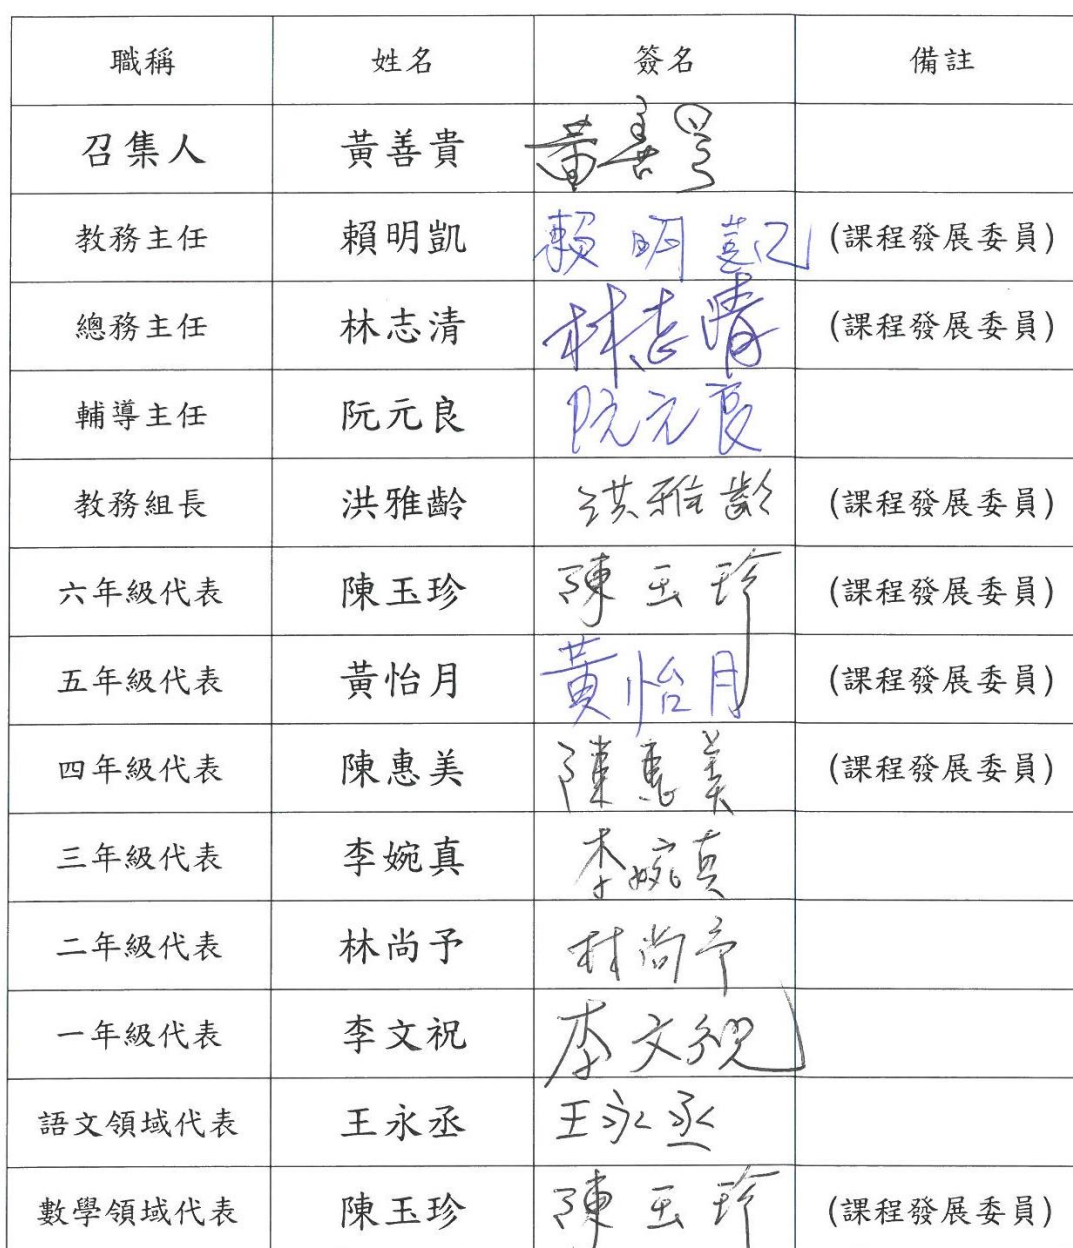 職稱 姓名 簽名 備註
召集人 黃善貴 黃善貴
教務主任 賴明凱 賴明凱 (課程發展委員)
總務主任 林志清 林志清 (課程發展委員)
輔導主任 阮元良 阮元良
教務組長 洪雅齡 洪雅齡 (課程發展委員)
六年級代表 陳玉珍 陳玉珍 (課程發展委員)
五年級代表 黃怡月 黃怡月 (課程發展委員)
四年級代表 陳惠美 陳惠美 (課程發展委員)
三年級代表 李婉真 李婉真
二年級代表 林尚予 林尚予
一年級代表 李文祝 李文祝
語文領域代表 王永丞 王永丞
數學領域代表 陳玉珍 陳玉珍 (課程發展委員)